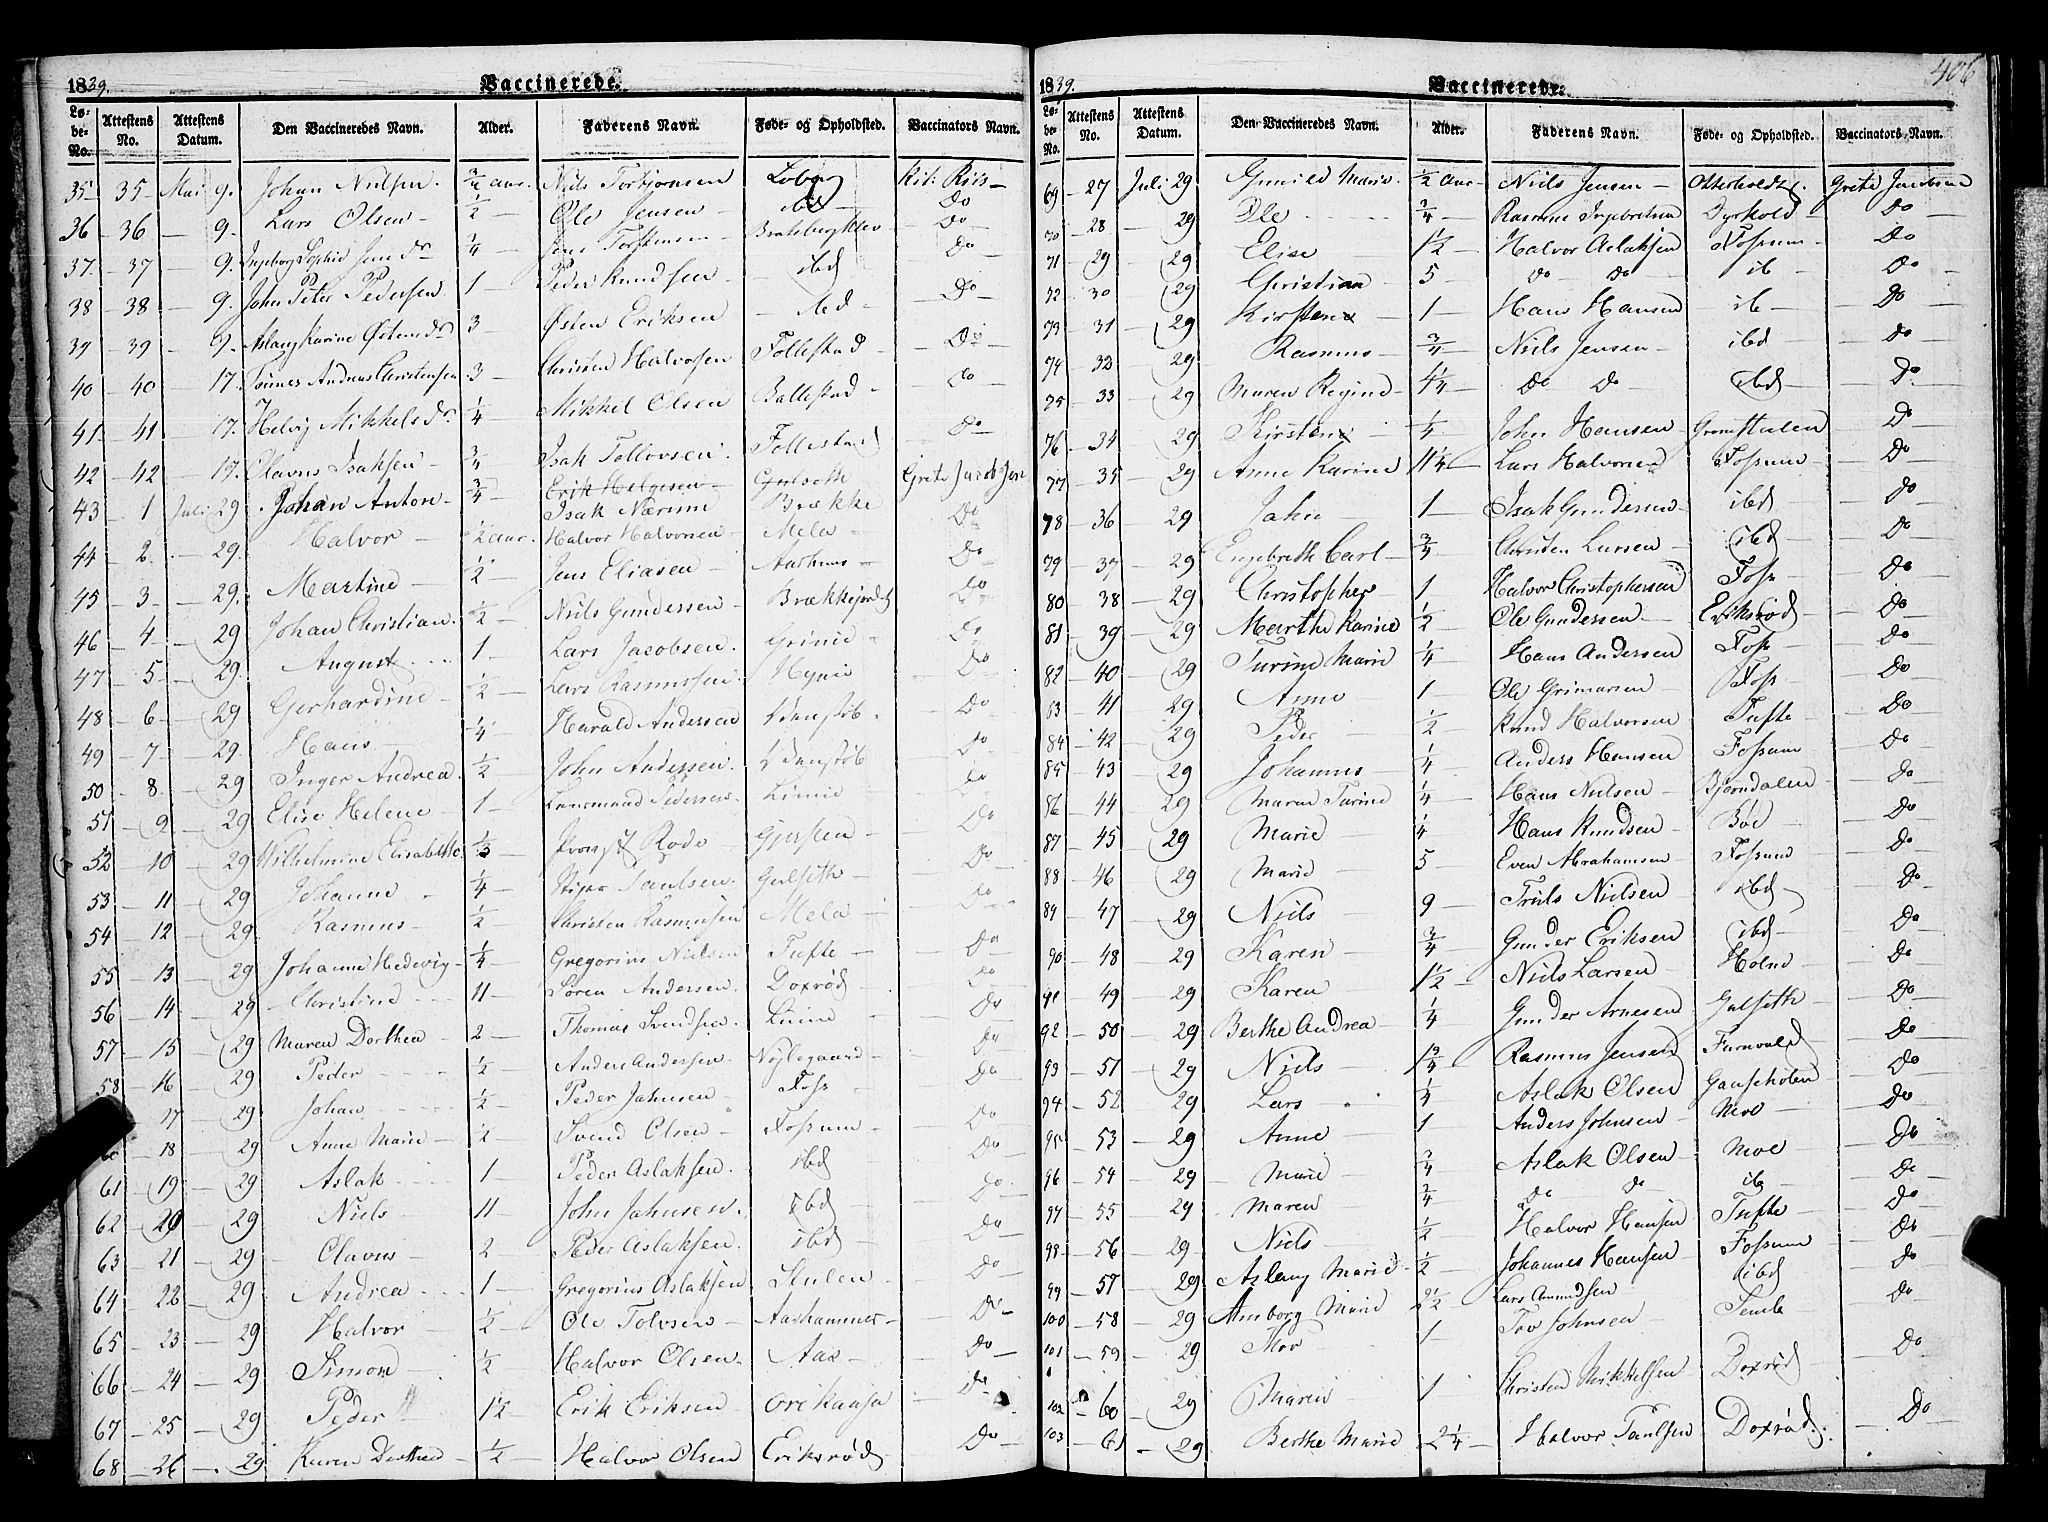 1839. Vaccinerede.
Lø-be-No. Attestens No. Attestens Datum. Den Vaccineredes Navn. Alder. Faderens Navn. Føde- og Opholdsted. Vaccinators Navn.
35 - 35 - Mai 9. Johan Nielsen. 3/4 aar. Niels Torbjonsen Loberg Kit: Riis -
36 - 36 - 9. Lars Olsen - 1/2 Ole Jensen - ibd - Do
37. - 37 - 9. Ingeborg Sophie Jensdr 3/4 Jens Torstensen - Bratsbergklev Do
38 - 38 - 9. John Peter Pedersen 1 - Peder Knudsen ibd Do
39 - 39 - 9. Aslaug Karine Østensdr 3 Østen Eriksen ibd - Do
40 - 40 - 17. Andreas Christensen 3 - Christen Halvorsen Follestad - Do
41 - 41 - 17. Helvig Mikkelsdr 1/4 Mikkel Olsen Ballestad - Do
42 - 42 - 17. Olavus Isaksen - 3/4 Isak Tollovsen. Follestad Do
43 - 1 Juli 29 Johan Anton - 3/4 Erik Helgesen - Isak Gulseth Brække Grete Jacobsen
44 - 2. - 29. Halvor - 1/2 aar. Halvor Halvorsen Mela - Do
45 - 3 - 29. Martine - 1/2 - Jens Eliasen - Aarhuus - Do
46 - 4 - 29 Johan Christian. 1/2 - Niels Gundersen - Brækkejordet Do
47 - 5 - 29. August 1 - Lars Jacobsen. Grinie - Do
48 - 6 - 29 Gerhardine 1/2 - Lars Rasmussen. Hynie - Do
49 - 7 - 29. Hans - 1/4 - Harald Andersen Do
50 - 8 - 29 Inger Andrea. 1/2 - John Andersen. Do
51 - 9 - 29 Elise Helene - 1 - Pedersen. Limie - Do
52 - 10 - 29 Wilhelmine Elisabeth. Rode Gjerpen - Do
53 - 11 - 29 Johanne - 1/4 - Paulsen. Gulseth - Do
54 - 12 - 29. Rasmus - 1/2 - Christen Rasmusen Mela - Do
55 - 13 - 29 Johanne Hedevig - 1/4 - Gregorius Nielsen Tufte - Do
56 - 14 - 29 Christine - 11 - Søren Andersen. Doxrød - Do
57 - 15 - 29 Maren Dorthea - 2 - Thomas Svendsen. Limie - Do
58 - 16 - 29 Peder 1/2 - Anders Andersen - Nøilegaard - Do
17 - 29 Johan 1/2 - Peder Jahnsen - Foss - Do
18 - 29 Anne Marie - 1/2 - Svend Olsen - Fossum - Do
61 - 19 - 29 Aslak - 1 - Peder Aslaksen. ibd - Do
62 - 20 - 29 Niels - 11 John Jahnsen. ibd - Do
63 - 21 - 29 Olavus 2 Peder Aslaksen. ibd - Do
64 - 22 - 29 Andrea 1 - Gregorius Aslaksen Stulen - Do
65 - 23 - 29 Halvor - 1/2 - Ole Tolvsen - Aashammer - Do -
66 - 24 - 29 Simon 1/2 - Halvor Olsen - Aas - Do -
67 - 25 - 29 Peder 1 1/2 - Erik Eriksen - Orekaasa Do
68 - 26 - 29 Karen Dorthea - 1/2 - Halvor Olsen Eriksrød Do -
1839. Vaccinerede. 406
Lø-be-No. Attestens No. Attestens Datum. Den Vaccineredes Navn. Alder. Faderens Navn. Føde- og Opholdsted. Vaccinators Navn.
69 - 27 Juli 29 Gunild Marie. 1/2 aar - Niels Jensen - Otterholdt. Grete Jacobsen
70 - 28 - 29 Ole 3/4 - Rasmus Ingebretsen Dyrkold Do
71 - 29 - 29 Elise 1 1/2 - Halvor Aslaksen Fossum - Do
72 - 30 - 29 Christian 5 - Do Do - ib - Do
73 - 31 - 29 Kirstene 1 - Hans Hansen ib - Do
74 - 32 - 29 Rasmus 3/4 - Niels Jensen - ibd - Do
75 - 33 - 29 Maren Regine - 4 1/4 - Do Do - ibd - Do
76 - 34 - 29 Kirstene 1/4 - John Hansen - Gromstulen - Do
77 - 35 - 29 Anne Karine 11 1/4 - Lars Halvorsen Fossum - Do
78 - 36 - 29 John 1 - Isak Gundersen - ibd - Do
79 - 37 - 29 Engebreth Carl - 3/4 - Christen Larsen - ibd - Do
80 - 38 - 29 Christopher 1 - Halvor Christophersen Foss - Do
81 - 39 - 29 Marthe Karine 1/2 - Ole Gundersen - Eriksrød - Do
82 - 40 - 29 Turine Marie 1/4 - Hans Andersen Foss - Do
83 - 41 - 29 Anne 1 - Ole Grimarsen - Foss - Do
84 - 42 - 29 Peder 1/2 - Knud Halvorsen Tufte - Do
85 - 43 - 29 Johannes 1/4 - Anders Hansen Fossum Do
86 - 44 - 29 Maren Turine 1/4 - Hans Nielsen - Bjørndalen Do
87 - 45 - 29 Marie 1/4 - Hans Knudsen Bøe - Do
88 - 46 - 29 Marie 5 - Even Abrahamsen Fossum - Do
89 - 47 - 29 Niels 9 - Truls Nielsen ibd - Do
90 - 48 - 29 Karen 3/4 - Gunder Eriksen ibd - Do
91 - 49 - 29 Karen 1 1/2 - Niels Larsen - Holm - Do
92 - 50 - 29 Berthe Andrea - 1/4 - Gunder Arnesen Gulseth - Do
93 - 51 - 29 Niels 1 3/4 - Rasmus Jensen - Furuvold Do
94 - 52 - 29 Lars 1/4 - Aslak Olsen - Gaaseholen Do
95 - 53 - 29 Anne 1 Anders Johnsen - Moe - Do
96 - 54 - 29 Marie 3/4 - Aslak Olsen - Moe - Do
97 - 55 - 29 Maren 2/4 - Do Do ib - Do
98 - 56 - 29 Niels 1/2 - Halvor Hansen Tufte - Do
99 - 57 - 29 Aslaug Marie - 1/2 - Johannes Hansen - Fossum - Do
100 - 58 - 29 Anborg Marie 2 1/2 - Lars Amundsen ibd Do
101 - 59 - 29 Thor 1 - Tov Johnsen - Semb - Do
102 - 60 - 29 Maren 1 Christen Mikkelsen Doxrød - Do
103 - 61 - 29 Berthe Marie 2 1/4 - Halvor Paulsen Doxrød. - Do